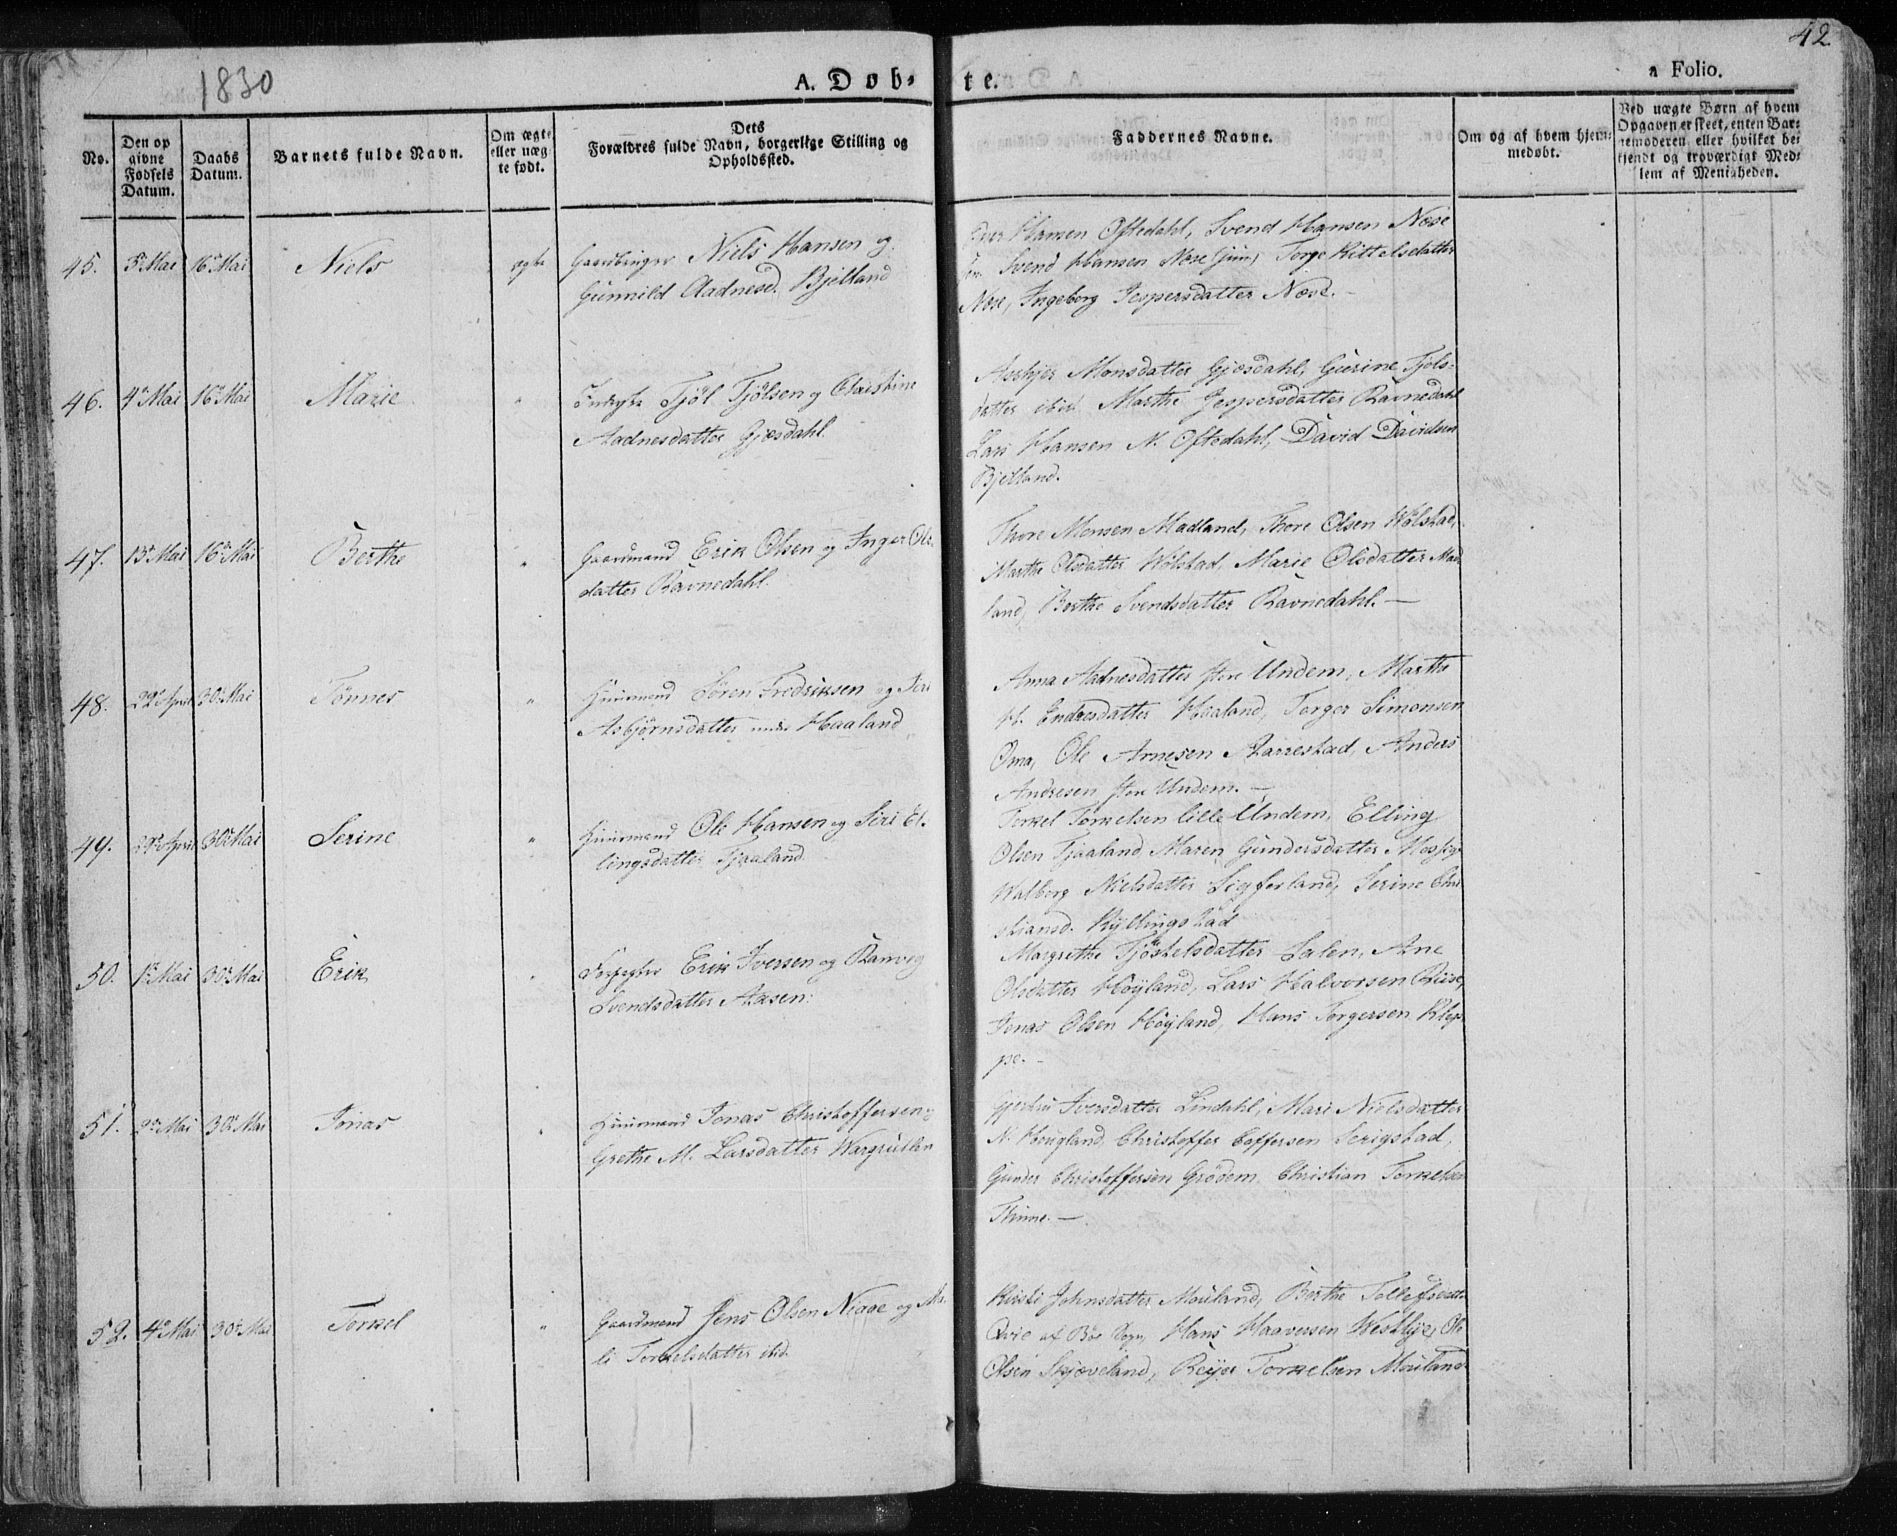 42
1830
A. Døb-
te.
a Folio.
No.
Den op
givne
Fødsels
Datum.
Daabs
Datum.
Barnets fulde Navn.
Om ægte
eller uæg
te født.
Dets
Forældres fulde Navn, borgerlige Stilling og
Opholdssted.
Faddernes Navne.
Om og af hvem hjem-
medøbt.
Ved uægte Børn af hvem
Opgaven er skeet, enten Bar-
nemoderen eller hvilket be-
kjendt og troværdigt Med-
lem af Menigheden.
45. 5te Mai 16de Mai Niels ægte Gaardbruger Niels Hansen og
Gunnild Aadnesd. Bjelland
Hansen Oftedahl, Svend Hansen Næse
Svend Hansen Næse jun, Torge Kittelsdatter
Næse, Ingeborg Jespersdatter Næse. –
46. 4de Mai 16de Mai Marie " Tjöl Tjölsen og Christine
Aadnesdatter Gjesdahl.
Monsdatter Gjesdahl, Gurine Tjöls-
datter ibid. Marthe Jespersdatter Ravnedahl
Lars Hansen N. Oftedahl, David Davidsen
Bjelland.
47. 13de Mai 16de Mai Berthe " Gaardmand Erik Olsen og Inger Ols-
datter Ravnedahl.
Thore Monsen Madland, Thore Olsen Wölstad,
Marthe Olsdatter Wölstad, Marie Olsdatter Mad-
land, Berthe Svendsdatter Ravnedahl. –
48. 22de April 30te Mai Tönnes " Huusmand Sören Fredriksen og Siri
Asbjörnsdatter under Haaland
Anna Aadnesdatter store Undem, Marthe
H. Endresdatter Haaland, Torger Simonsen
Oma, Ole Arnesen Aarrestad, Anders
Andresen store Undem. –
49. 29de April 30te Mai Serine " Huusmand Ole Hansen og Siri El-
lingsdatter Tjaaland
Torkel Torkelsen lille Undem, Elling
Olsen Tjaaland, Maren Gundersdatter
Walborg Nielsdatter Sigferland, Serine Chri-
stiansd. Kyllingstad
50. 1te Mai 30te Mai Erik " Erik Iversen og Ranveg
Svendsdatter Aasen:
Margrethe Tjöstelsdatter Salen, Ane
Olsdatter Höyland, Lars Halvorsen Riise,
Jonas Olsen Höyland, Hans Torgersen Klep-
pe. –
51. 2de Mai 30te Mai Jonas " Huusmand Jonas Christoffersen og
Grethe M. Larsdatter
Iversdatter Lindahl, Mari Nielsdatter
N. Haugland, Christoffer Coffersen Serigstad,
Gunder Christoffersen Grödem, Christian Torkelsen
Thime. –
52. 4de Mai 30te Mai Torkel " Gaardmand Jens Olsen Niaae og Ma-
li Torkelsdatter ibid.
Kirsti Johnsdatter Mouland, Berthe Tollefsdatter
af Böe Sogn, Hans Haaversen Westlye, Ole
Olsen Skjæveland, Reyer Torkelsen Mouland